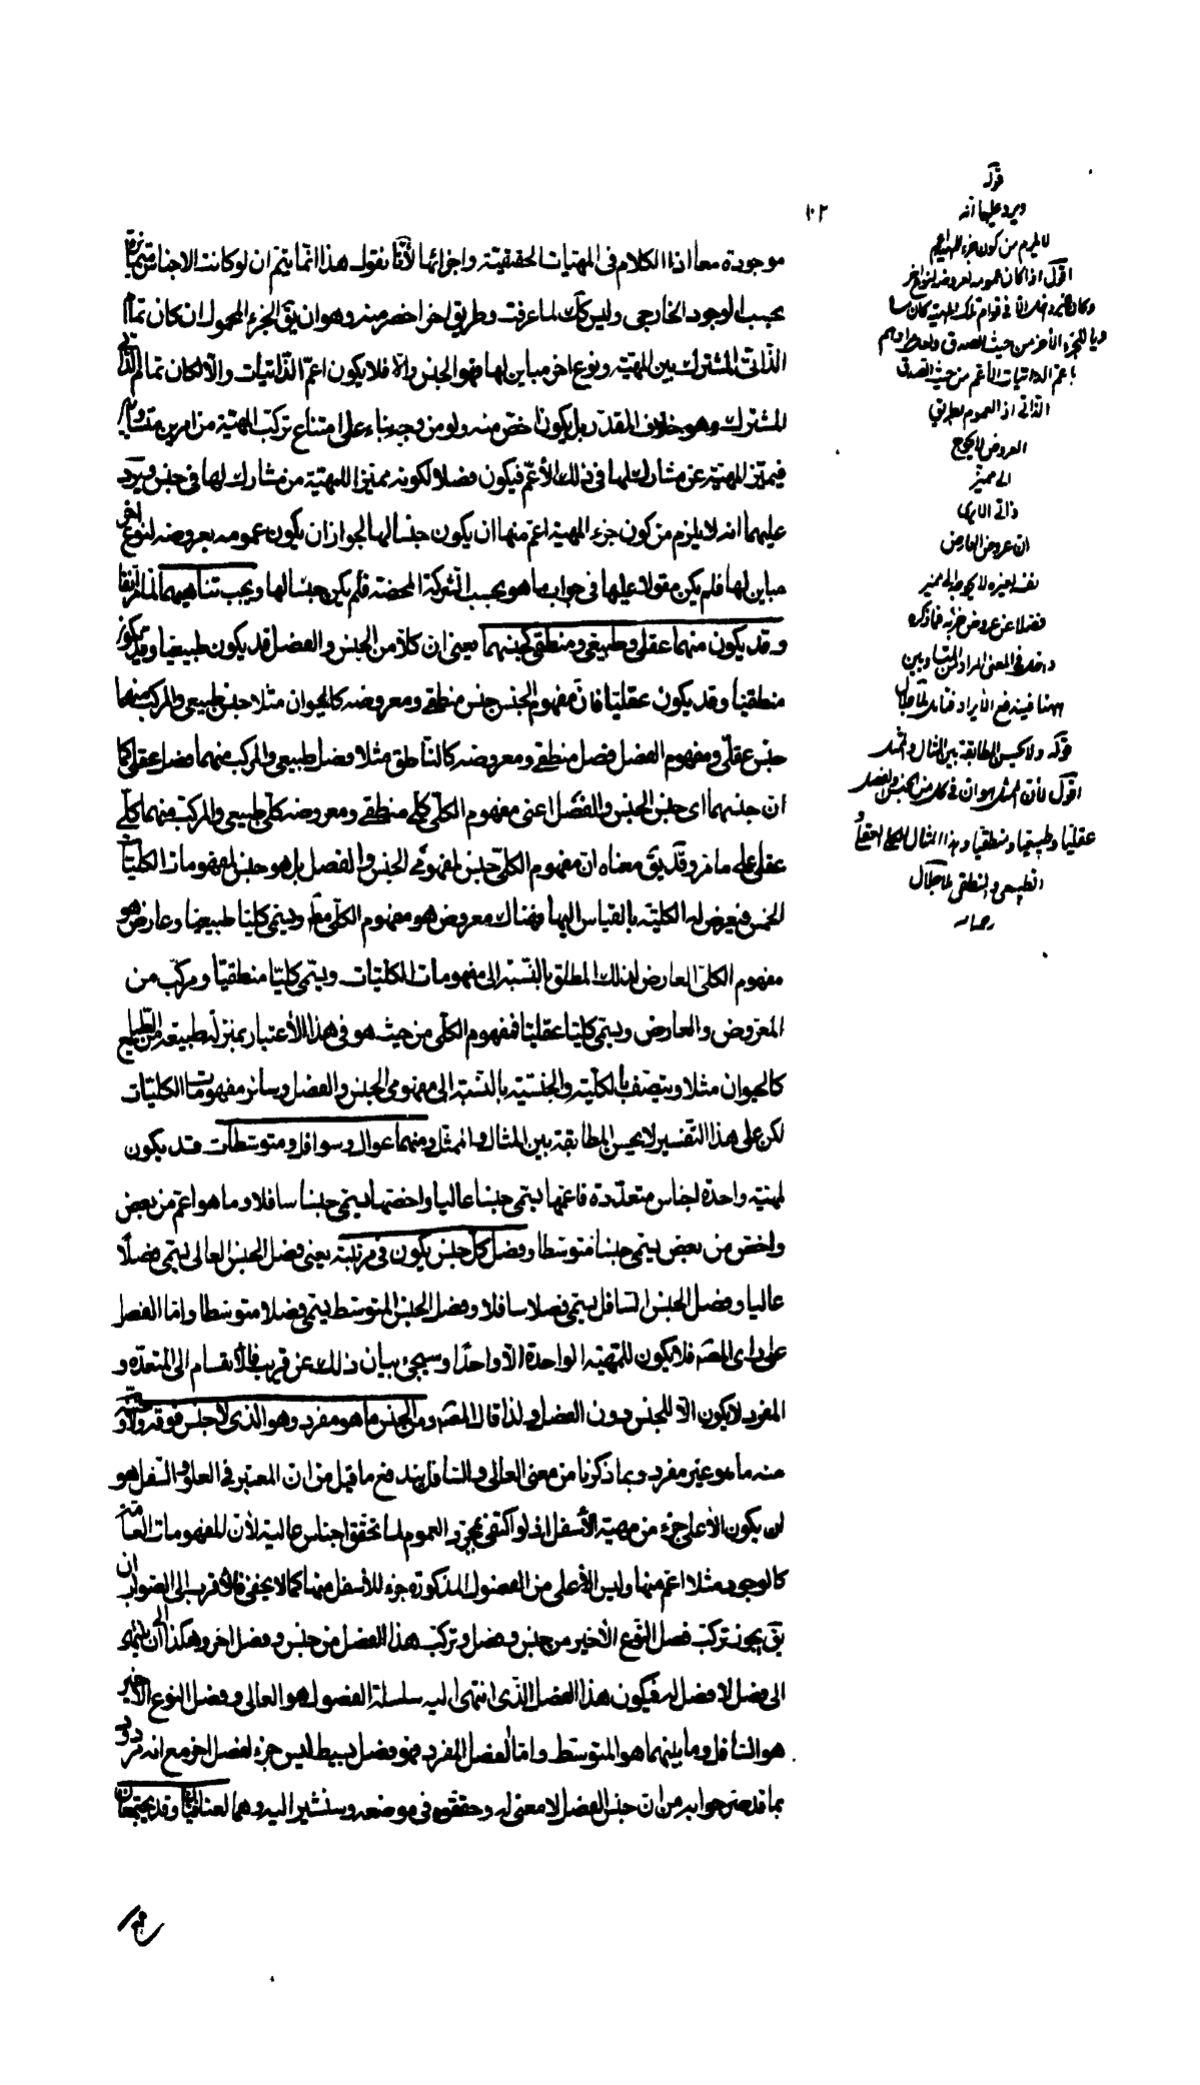 ١٠٢
موجودة معا اذا الكلام فى المهيات الحقيقية واجزائها لأنا نقول هذا انما يتم ان لو كانت الاجناس متميزة
بحسب الوجود الخارجى وليس كك لما عرفت وطريق اخر اخصر منه وهو ان يق الجزء المحمول ان كان تمام
الذاتى المشترك بين المهية ونوع اخر مباين لها فهو الجنس والا فلا يكون اعم الذاتيات والا لكان تمام الذاتى
المشترك وهو خلاف المقدر بل يكون اخص منه ولو من وجه بناء على امتناع تركب المهية من امرين متساويين
فيميز المهية عن مشارك لها فى ذلك الأعم فيكون فصلا لكونه مميزا للمهية من مشارك لها فى جنس ويرد
عليهما انه لا يلزم من كون جزء المهية اعم منها ان يكون جنسا لها لجواز ان يكون عمومه بعروضه لنوع اخر
مباين لها فلم يكن مقولا عليها فى جواب ما هو بحسب الشركة المحضة فلم يكن جنسا لها ويجب تناهيهما لما مر انفا
وقد يكون منهما عقلى وطبيعى ومنطقى كجنسهما يعنى ان كلا من الجنس والفصل قد يكون طبيعيا وقد يكون
منطقيا وقد يكون عقليا فان مفهوم الجنس جنس منطقى ومعروضه كالحيوان مثلا جنس طبيعى والمركب منهما
جنس عقلى ومفهوم الفصل فصل منطقى ومعروضه كالناطق مثلا فصل طبيعى والمركب منهما فصل عقلى كما
ان جنسهما اى جنس الجنس والفصل اعنى مفهوم الكلى كلى منطقى ومعروضه كلى طبيعى والمركب منهما كلى
عقلى على ما مر وقد يق معناه ان مفهوم الكلى جنس لمفهومى الجنس والفصل بل هو جنس لمفهومات الكليات
الخمس فيعرض له الكلية بالقياس اليها فهناك معروض هو مفهوم الكلى مط ويسمى كليا طبيعيا وعارض هو
مفهوم الكلى العارض لذلك المطلق بالنسبة الى مفهومات الكليات ويسمى كليا منطقيا ومركب من
المعروض والعارض ويسمى كليا عقليا فمفهوم الكلى من حيث هو فى هذا الأعتبار بمنزلة طبيعة من الطبايع
كالحيوان مثلا ويتصف بالكلية والجنسية بالنسبة الى مفهومى الجنس والفصل وسائر مفهومات الكليات
لكن على هذا التفسير لا يحسن المطابقة بين المثال والممثل ومنهما عوال وسوافل ومتوسطات قد يكون
لمهية واحدة اجناس متعددة فاعمها يسمى جنسا عاليا واخصها يسمى جنسا سافلا وما هو اعم من بعض
واخص من بعض يسمى جنسا متوسطا وفصل كل جنس يكون فى مرتبته يعنى فصل الجنس العالى يسمى فصلا
عاليا وفصل الجنس السافل يسمى فصلا سافلا وفصل الجنس المتوسط يسمى فصلا متوسطا واما الفصل
على راى المصه فلا يكون للمهية الواحدة الا واحدا وسيجئ بيان ذلك عن قريب فالأنقسام الى المتعدد و
المفرد لا يكون الا للجنس دون الفصل ولذا قال المصه ومن الجنس ما هو مفرد وهو الذى لا جنس فوقه ولا تحته و
منه ما هو غير مفرد وبما ذكرنا من معنى العالى والسافل يندفع ما قيل من ان المعتبر فى العلو والسفل هو
ان يكون الأعلى جزء من مهية الأسفل اذ لو اكتفى بمجرد العموم لما تحقق اجناس عالية لأن للمفهومات العامة
كالوجود مثلا اعم منها وليس الأعلى من الفصول المذكورة جزء للأسفل منها كما لا يخفى فالأقرب الى الصواب ان
يق يجوز تركب فصل النوع الأخير من جنس وفصل وتركب هذا الفصل من جنس وفصل اخر وهكذا الى ان ينتهى
الى فصل لا فصل له فيكون هذا الفصل الذى انتهى اليه سلسلة الفصول هو العالى وفصل النوع الأخير
هو السافل وما بينهما هو المتوسط واما الفصل المفرد فهو فصل بسيط ليس جزء لفصل اخر مع انه مردود
بما قد صر جوابه من ان جنس الفصل لا معنى له وحققوه فى موضعه وسنشير اليه وهما اضافيان وقد يجتمعان
قوله
ويرد عليهما انه
لا يلزم من كون جزء المهية اعم
اقول اذا كان عمومه لعروضه لنوع اخر
العروض لا يحوج
الى مميز
ذاتى
ان عروض العارض
لغيره لا يحوجه الى مميز
فضلا عن عروض جزئه فما ذكره
داخل فى المعنى المراد من المتساويين
ههنا فيندفع الأيراد فتامل
قوله ولا يحسن المطابقة بين المثال والممثل
اقول لأن الممثل هو ان فى كل من الجنس والفصل
عقليا وطبيعيا ومنطقيا وهذا المثال
الطبيعى والمنطقى